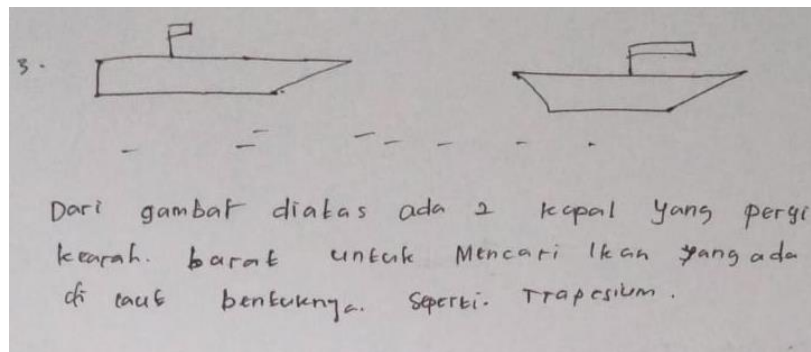 3.
Dari gambar diatas ada 2 kapal yang pergi
kearah. barat untuk Mencari Ikan yang ada
di laut bentuknya. seperti. Trapesium.